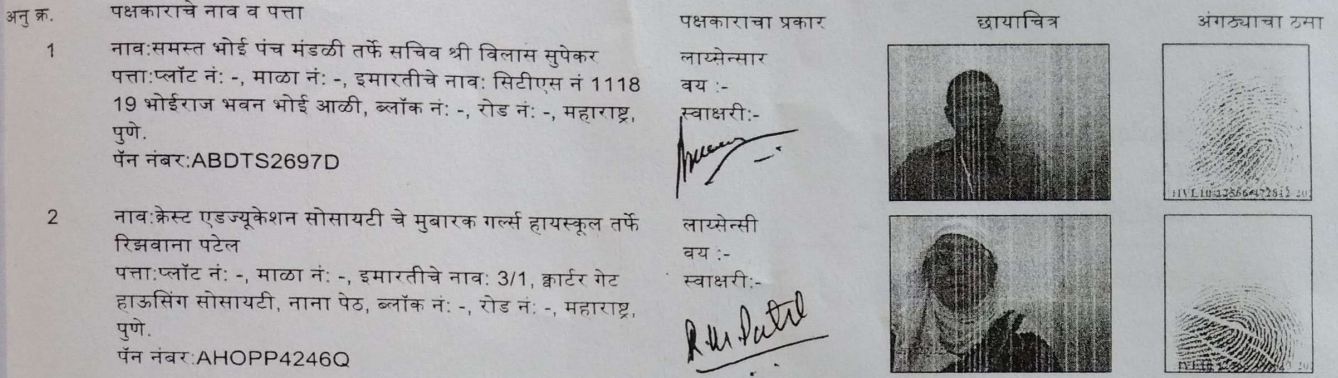 अनु क्र. पक्षकाराचे नाव व पत्ता पक्षकाराचा प्रकार छायाचित्र अंगठ्याचा ठसा
1 नाव:समस्त भोई पंच मंडळी तर्फे सचिव श्री विलास सुपेकर
पत्ता:प्लॉट नं: -, माळा नं: -, इमारतीचे नाव: सिटीएस नं 1118
19 भोईराज भवन भोई आळी, ब्लॉक नं: -, रोड नं: -, महाराष्ट्र,
पुणे.
पॅन नंबर:ABDTS2697D
लायसेन्सार
वय :-
स्वाक्षरी:-
2 नाव:क्रेस्ट एडज्यूकेशन सोसायटी चे मुबारक गर्ल्स हायस्कूल तर्फे
रिझवाना पटेल
पत्ता:प्लॉट नं: -, माळा नं: -, इमारतीचे नाव: 3/1, क्वार्टर गेट
हाऊसिंग सोसायटी, नाना पेठ, ब्लॉक नं: -, रोड नं: -, महाराष्ट्र,
पुणे.
पॅन नंबर:AHOPP4246Q
लायसेन्सी
वय :-
स्वाक्षरी:-
R.M.Patel